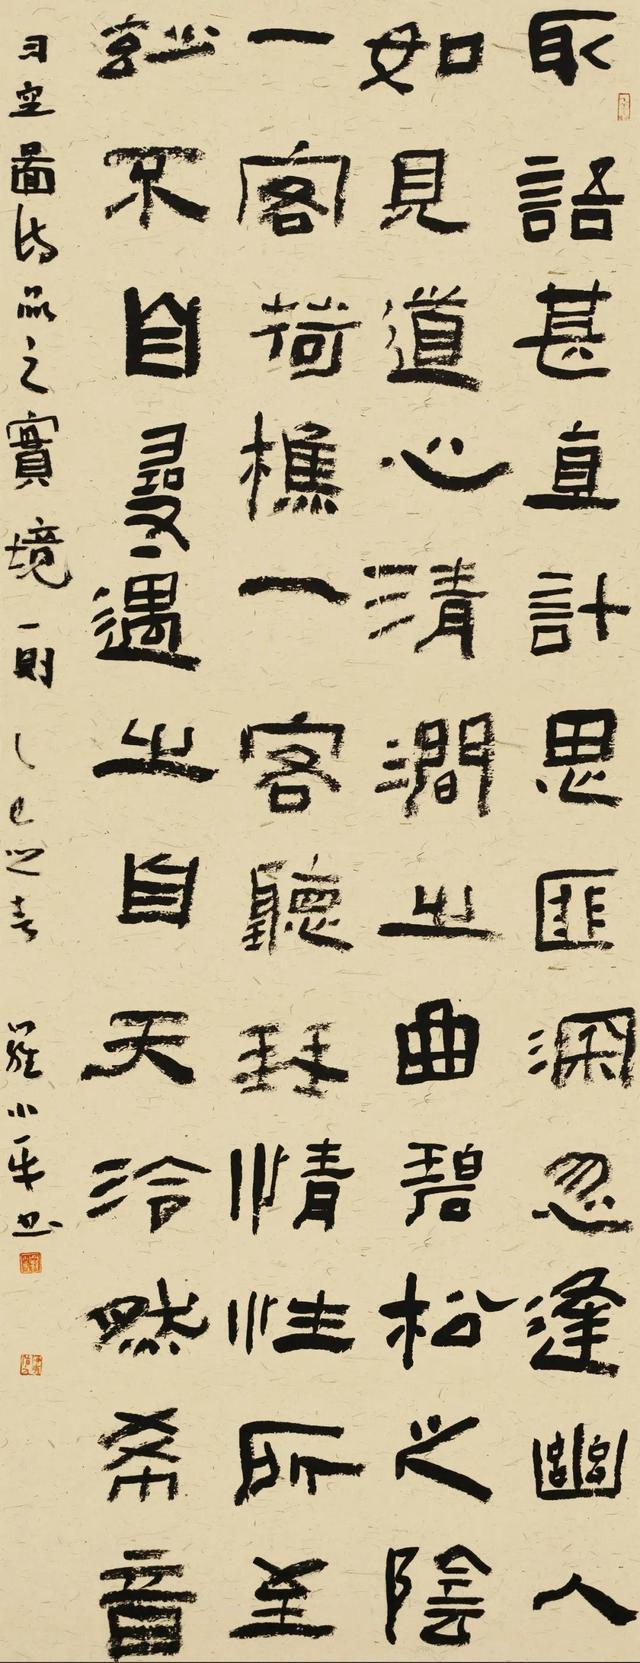 取語甚直計思匪深忽逢幽人
如見道心清澗之曲碧松之陰
一客荷樵一客聽琴情性所至
玅不自尋遇之自天泠然希音
司空圖詩品之實境一則 乙巳之春 羅小平书